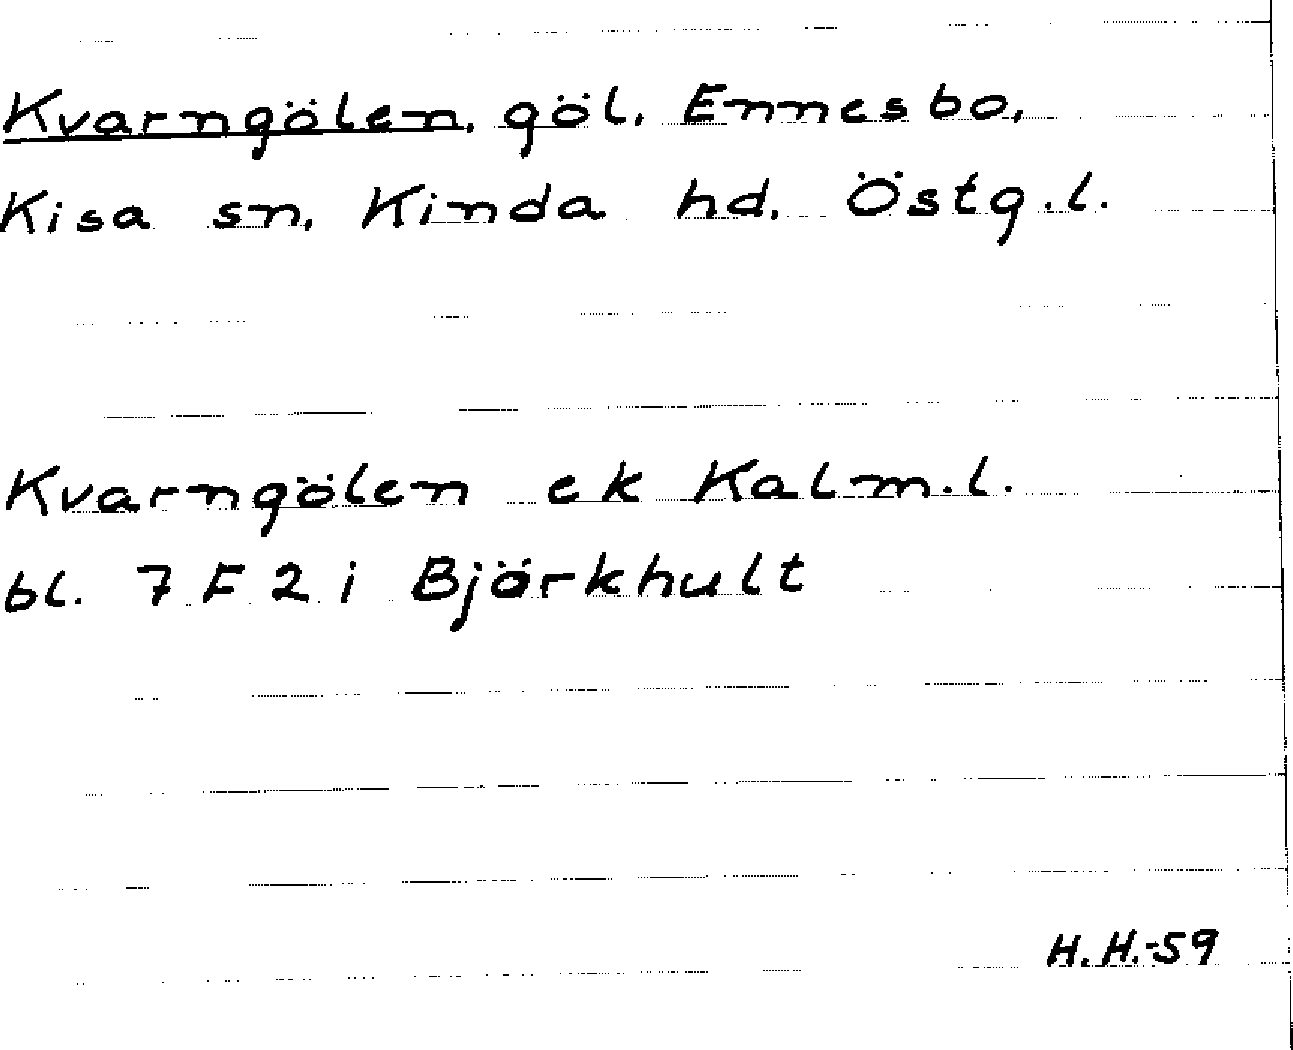 Kvarngölen, göl, Ennesbo,
Kisa sn, Kinda hd, Östg.l.
Kvarngölen ek Kalm.l.
bl. 7 F 2 i Björkhult
H.H.-59